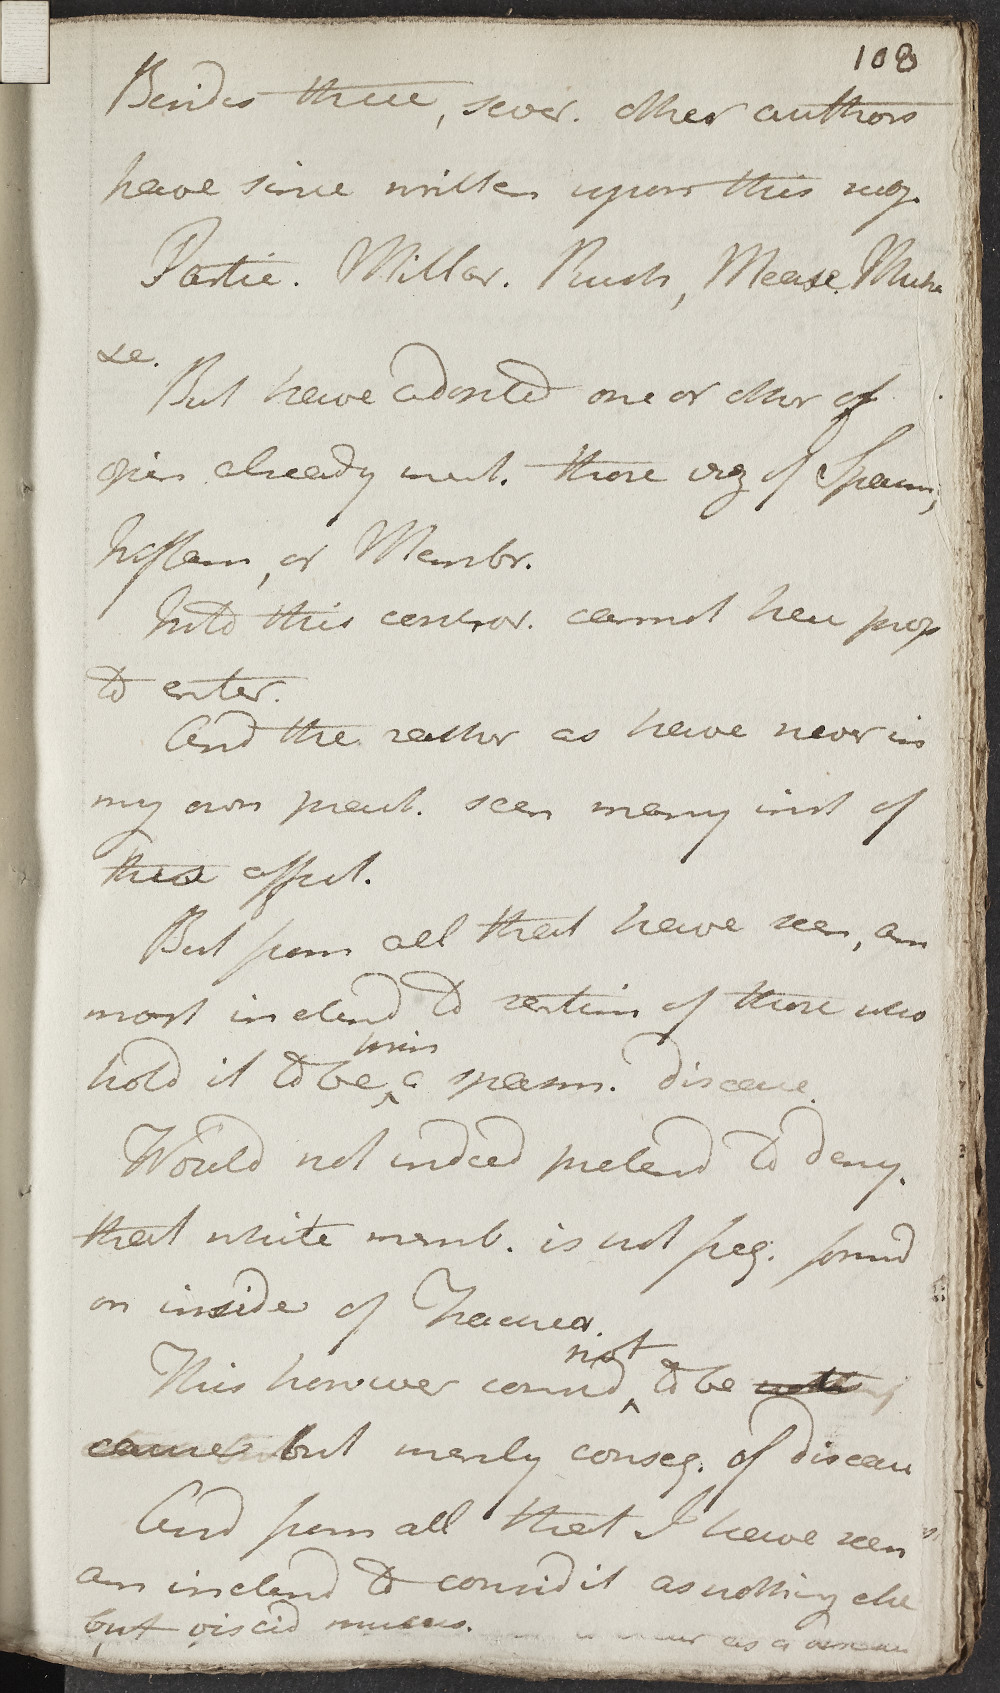 108
Besides these, sever. other authors
have since written upon this subj.
Partic. Millar. Rush, Mease. Micha
&c.
But have adopted one or other of
opin already ment. those viz of Spasm,
Inflam, or Membr.
Into this controv. cannot here prop
to enter.
And the rather as have never in
my own pract. seen many inst of
these affect.
But from all that have seen, am
most inclend to sentim of those who
hold it to be prim a spasm. disease.
Would not indeed pretend to deny.
that white memb. is not freq. found
on inside of Trachea.
This however consid not to be
cause but merely conseq. of disease
And from all that I have seen
am inclend to consid it as nothing else
but viscid mucus. as a